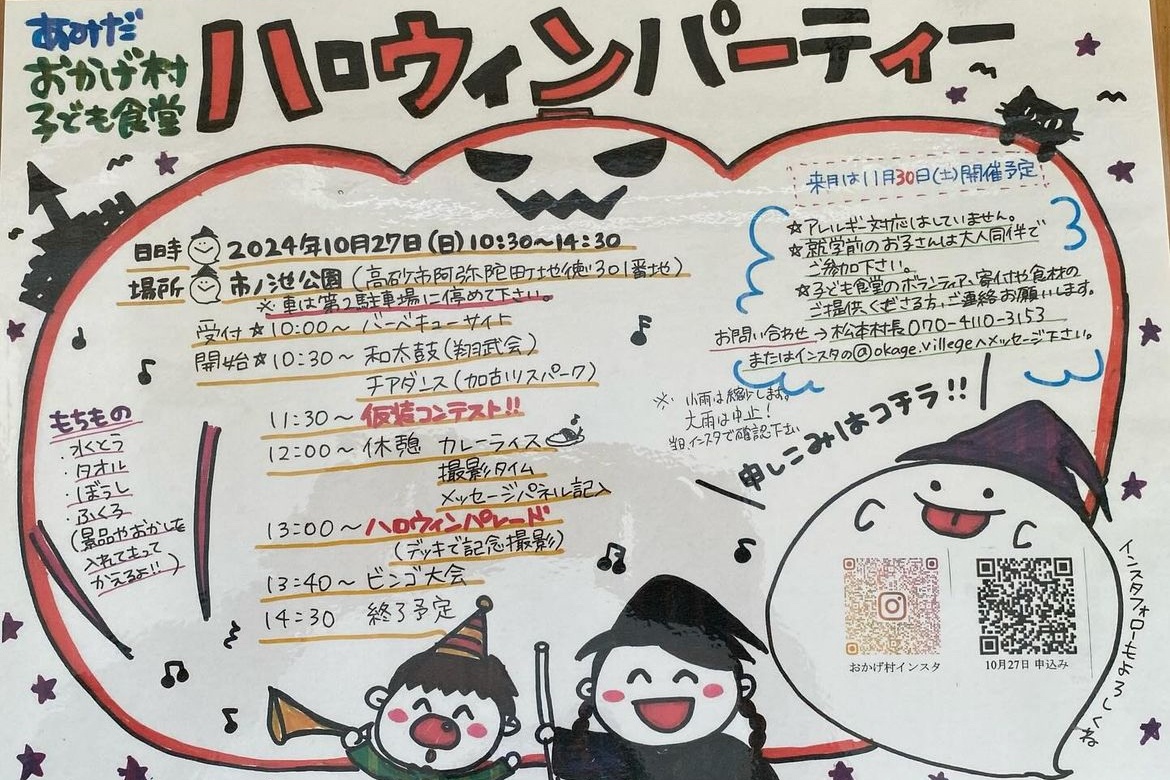 あみだ
おかげ村
子ども食堂
ハロウィンパーティー
来月は11月30日(土)開催予定
日時 2024年10月27日(日)10:30~14:30
場所 市ノ池公園(高砂市阿弥陀町地徳301番地)
※車は第2駐車場に停めて下さい。
受付☆10:00~ バーベキューサイト
開始☆10:30~ 和太鼓(翔武会)
チアダンス(加古川スパーク)
11:30~ 仮装コンテスト!!
12:00~ 休憩 カレーライス
撮影タイム
メッセージパネル記入
13:00~ ハロウィンパレード
(デッキで記念撮影)
13:40~ ビンゴ大会
14:30 終了予定
もちもの
・水とう
・タオル
・ぼうし
・ふくろ
(景品やおかしを
入れてもって
かえるよ!!)
☆アレルギー対応はしていません。
☆就学前のお子さんは大人同伴で
ご参加下さい。
☆子ども食堂のボランティア、寄付や食材の
ご提供くださる方、ご連絡お願いします。
お問い合わせ→松本村長070-4110-3153
またはインスタの@okage.villegeへメッセージ下さい。
※小雨は縮小します。
大雨は中止!
当日、インスタで確認下さい
申しこみはコチラ!!
おかげ村インスタ
10月27日 申込み
インスタフォローもよろしくね